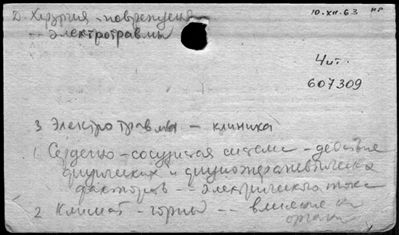 Д. Хирургия - повреждения
-- электротравмы
10.XII.63
Чит.
607309
3 Электротравмы - клиника
1 Сердечно-сосудистая система - действие
физических и физиотерапевтических
факторов -- электрического тока
2 Климат - горный -- влияние на
организм